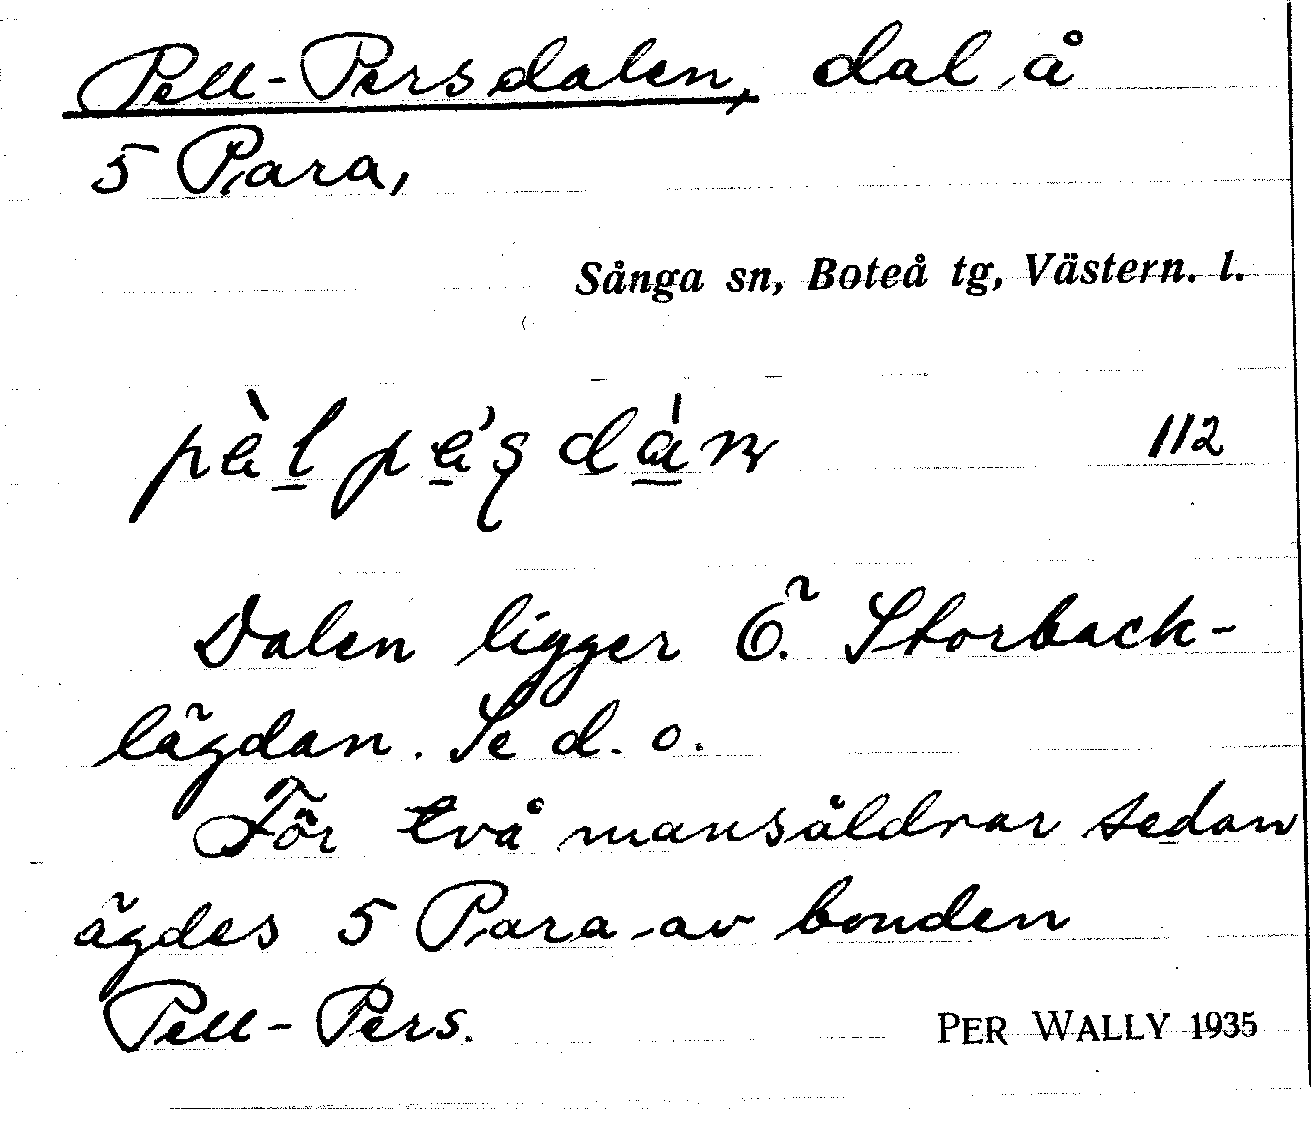 Pell-Persdalen, dal å
5 Para,
Sånga sn, Boteå tg, Västern. l.
112
Dalen ligger Ö. Storback-
lägdan. Se d. o.
För två mansåldrar sedan
ägdes 5 Para av bonden
Pell-Pers.
PER WALLY 1935